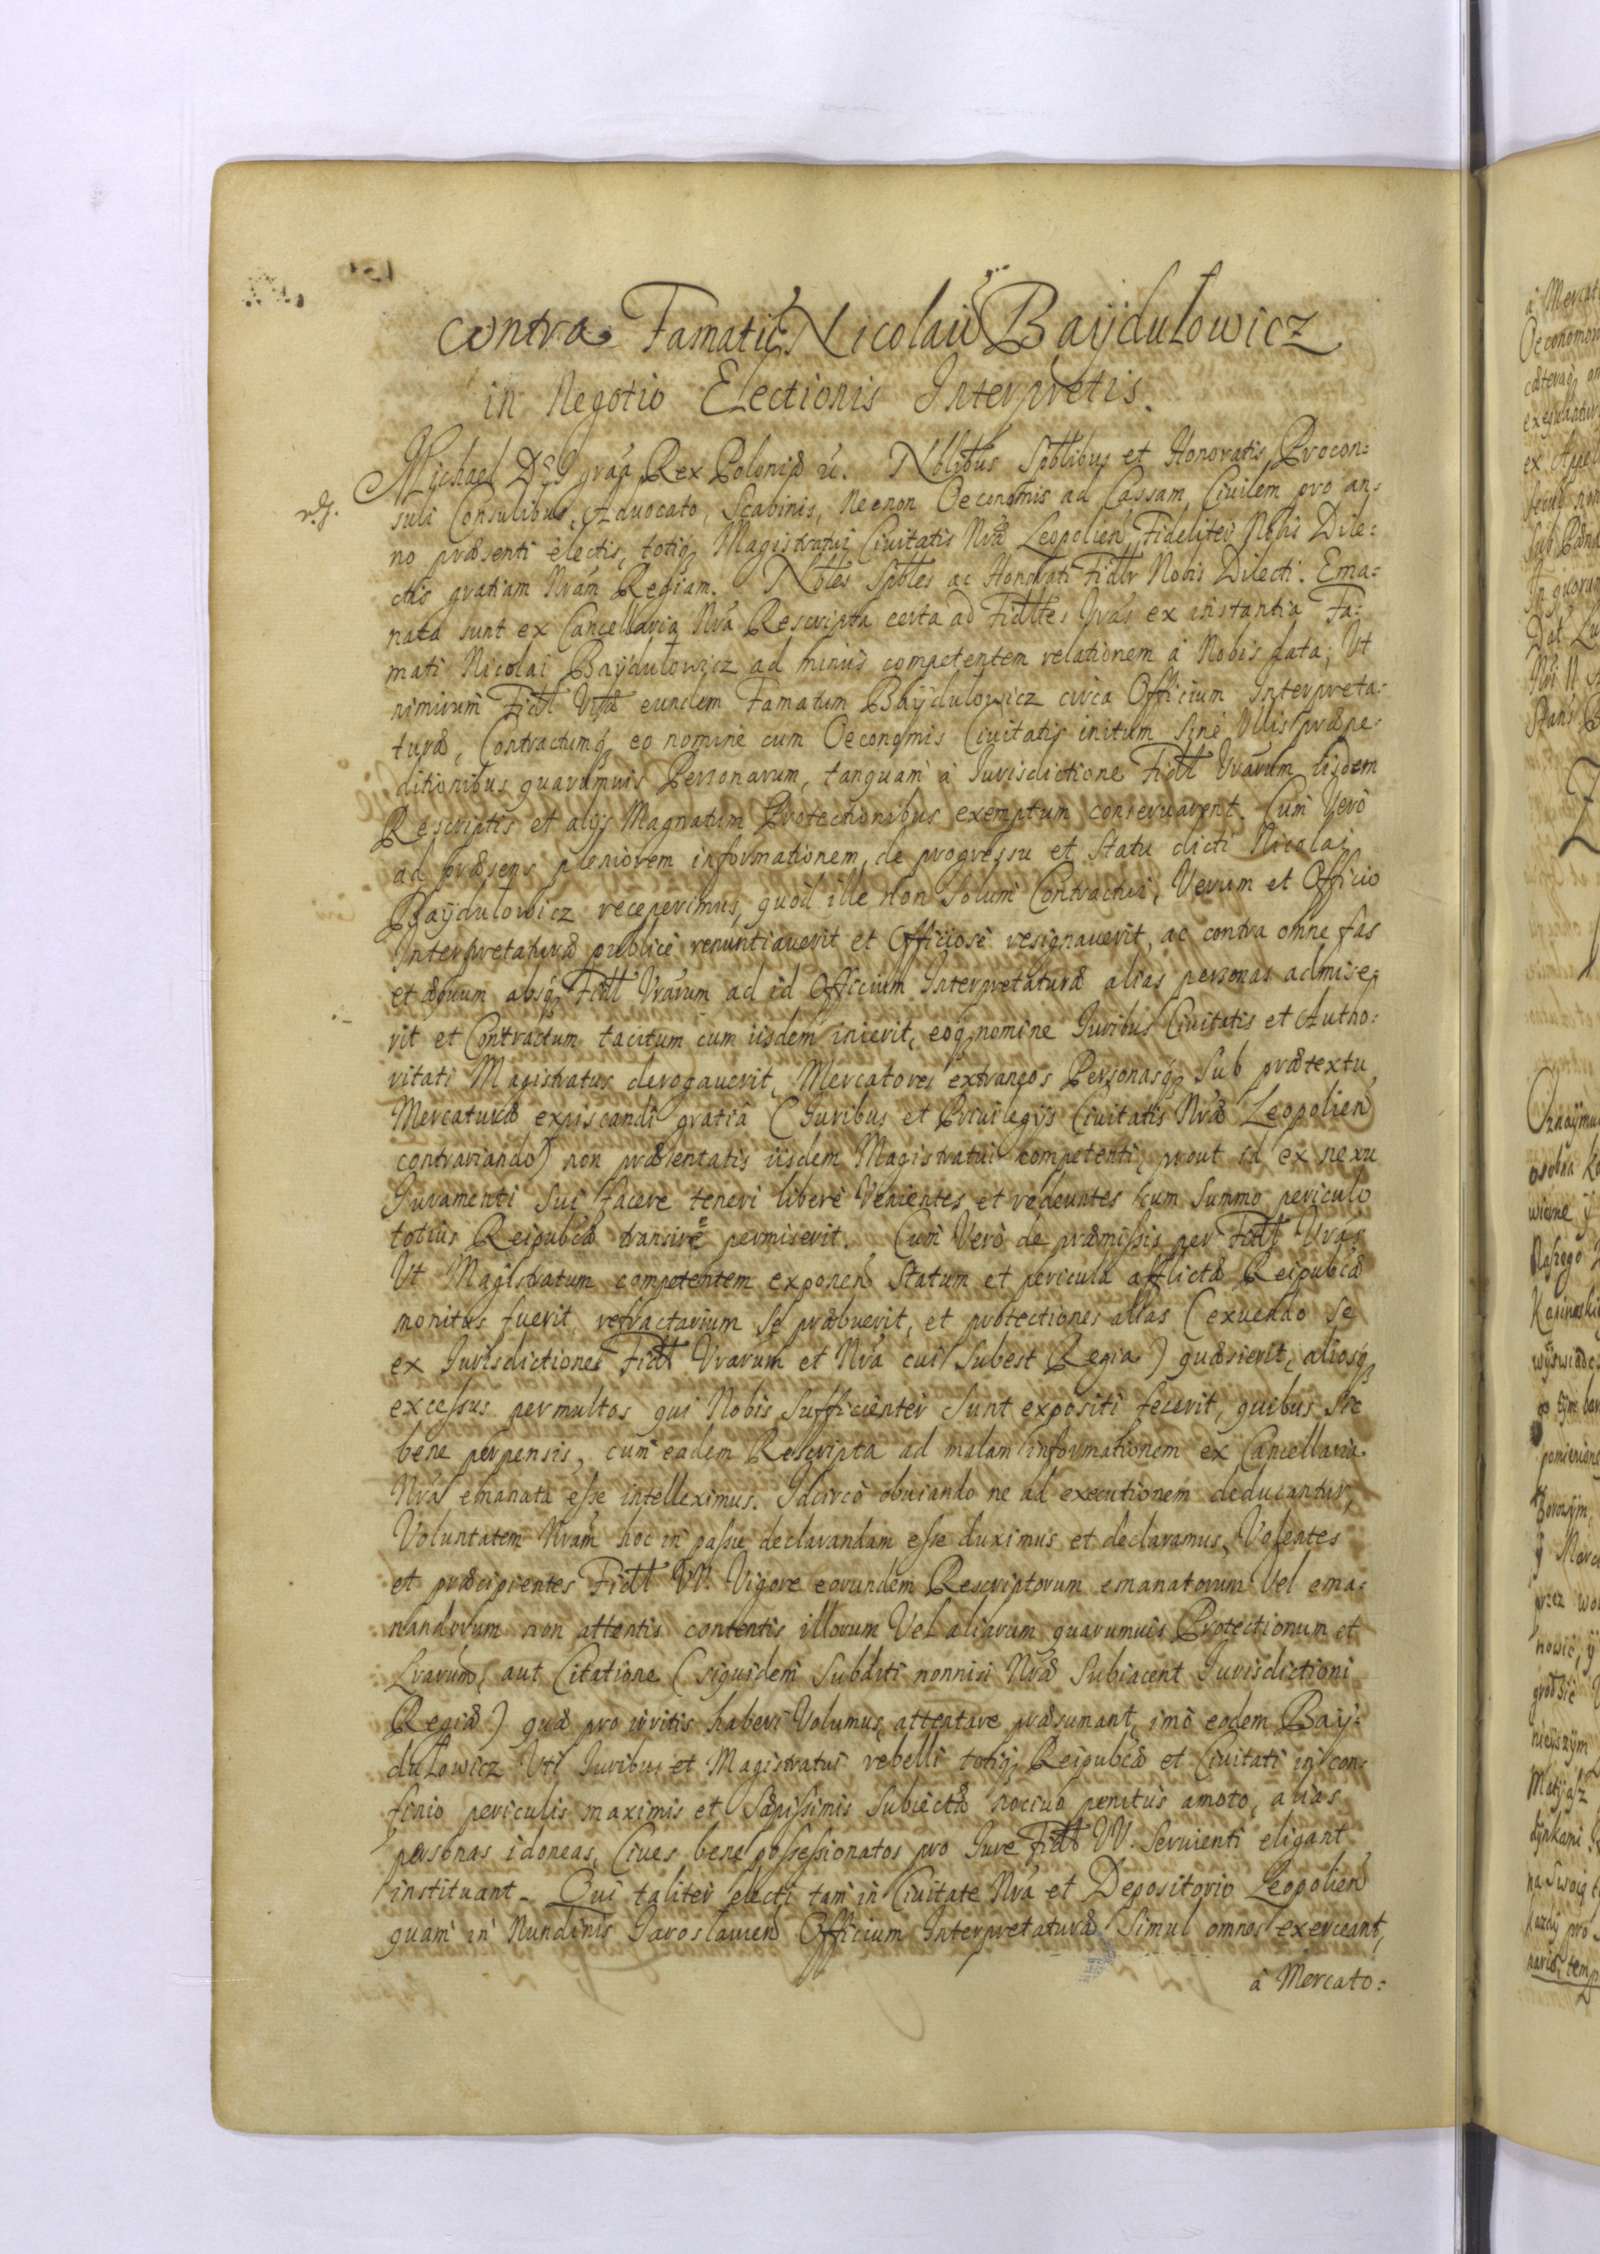 contra Famatũ Nicolaũ Baÿdulowicz
in Negotio Electionis Interpretis.
Michael D. G. grãa Rex Poloniæ &. Nblibus Spblibus et Honoratis Procon:
suli Consulibus, Advocato, Scabinis, Necnon Oeconomis ad Cassam Civilem pro an:
r. g.
no præsenti electis, totiq Magistratui Civitatis Nræ Leopolien Fideliter Nobis Dile:
ctis gratiam Nram Regiam. Nbles Spbles ac Honorati Fidlr Nobis Dilecti. Ema:
nata sunt ex Cancellaria Nra Rescripta certa ad Fidttes Vras ex instantia Fa:
mati Nicolai Baÿdulowicz ad minus competentem relationem à Nobis data; Ut
nimirum Fidt Vræ eundem Famatum Baÿdulowicz circa Officium Interpreta:
turæ, Contractumq eo nomine cum Oeconomis Civitatis initum sine Ullis præpe:
ditionibus quarumvis Personarum, tanquam à Jurisdictione Fidt Vrarum iisdem
Rescriptis et alijs Magnatum Protectionibus exemptum conservarent. Cum Verò
ad præsens pleniorem informationem, de progressu et statu dicti Nicolai
Baÿdulowicz receperimus, quod ille Non solum Contractui, Verum et Officio
Interpretaturæ publicè renuntiaverit et Officiosè resignaverit, ac contra omne fas
et æquum absq Fidt Vrarum ad id Officium Interpretaturæ alias personas admise:
rit et Contractum tacitum cum iisdem inierit, eoq nomine Juribus Civitatis et Autho:
ritati Magistratus derogaverit, Mercatores extraneos Personasq sub prætextu
Mercaturæ expiscandi gratiâ (Juribus et Privilegijs Civitatis Nræ Leopolien
contrariando) non præsentatis iisdem Magistratui competenti, prout id ex nexu
Juramenti sui facere teneri liberè Venientes et redeuntes cum summo periculo
totius Reipubcæ transire permiserit. Cum Verò de præmissis per Fidt Vras
Ut Magistratum competentem exponen statum et pericula afflictæ Reipubcæ
monitus fuerit refractarium se præbuerit, et protectiones alias (exuendo se
ex Jurisdictione Fidt Vrarum et Nra cui subest Regia) quæsierit, aliosq
excessus permultos qui Nobis sufficienter sunt expositi fecerit, quibus sic
bene perpensis, cum eadem Rescripta ad malam informationem ex Cancellaria
Nra emanata esse intelleximus. Idcircò obviando ne ad executionem deducantur,
Voluntatem Nram hoc in passu declarandam esse duximus et declaramus, Volentes
et præcipientes Fidt VV. Vigore eorundem Rescriptorum emanatorum Vel ema:
nandorum non attentis contentis illorum Vel aliarum quarumvis Protectionum et
Lrarum, aut Citatione (siquidem subditi nonnisi Nræ subiacent Jurisdictioni
Regiæ) quæ pro irritis haberi Volumus, attentare præsumant, imò eodem Baÿ:
dulowicz Uti Juribus et Magistratui rebelli totiq Reipubcæ et Civitati in con:
finio periculis maximis et sæpissimis subiectæ nocivo penitus amoto, alias
personas idoneas, Cives bene possessionatos pro Jure Fidt VV. servienti eligant
instituant. Qui taliter electi tam in Civitate Nra et Depositorio Leopolien
quam in Nundinis Jaroslavien Officium Interpretaturæ simul omnes exerceant,
à Mercato: